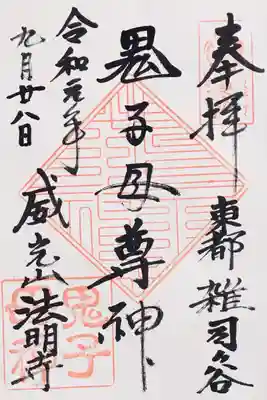 奉拝
東都 雑司ヶ谷
鬼子母尊神
威光山 法明寺
令和元年
九月廿八日